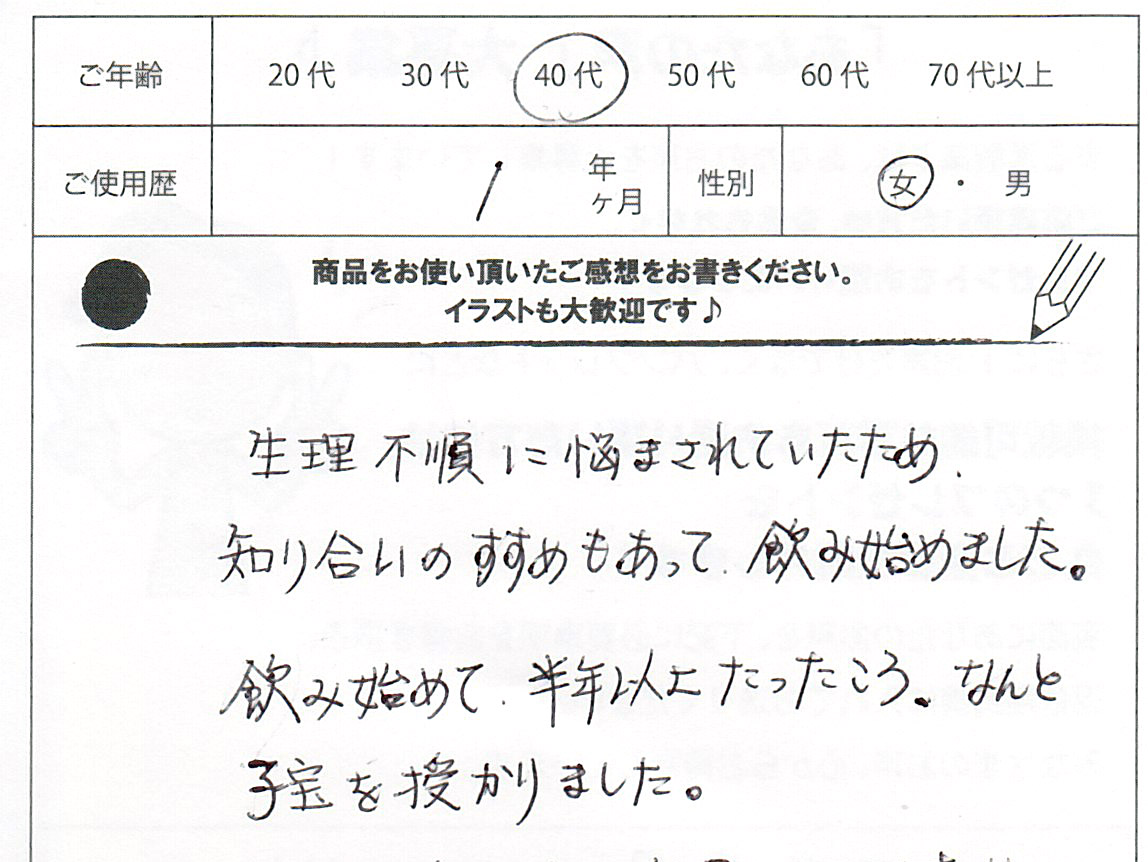 ご年齢 20代 30代 40代 50代 60代 70代以上
ご使用歴 1 年 ヶ月 性別 女・男
商品をお使い頂いたご感想をお書きください。
イラストも大歓迎です♪
生理不順に悩まされていたため、
知り合いのすすめもあって、飲み始めました。
飲み始めて、半年以上たったころ、なんと
子宝を授かりました。